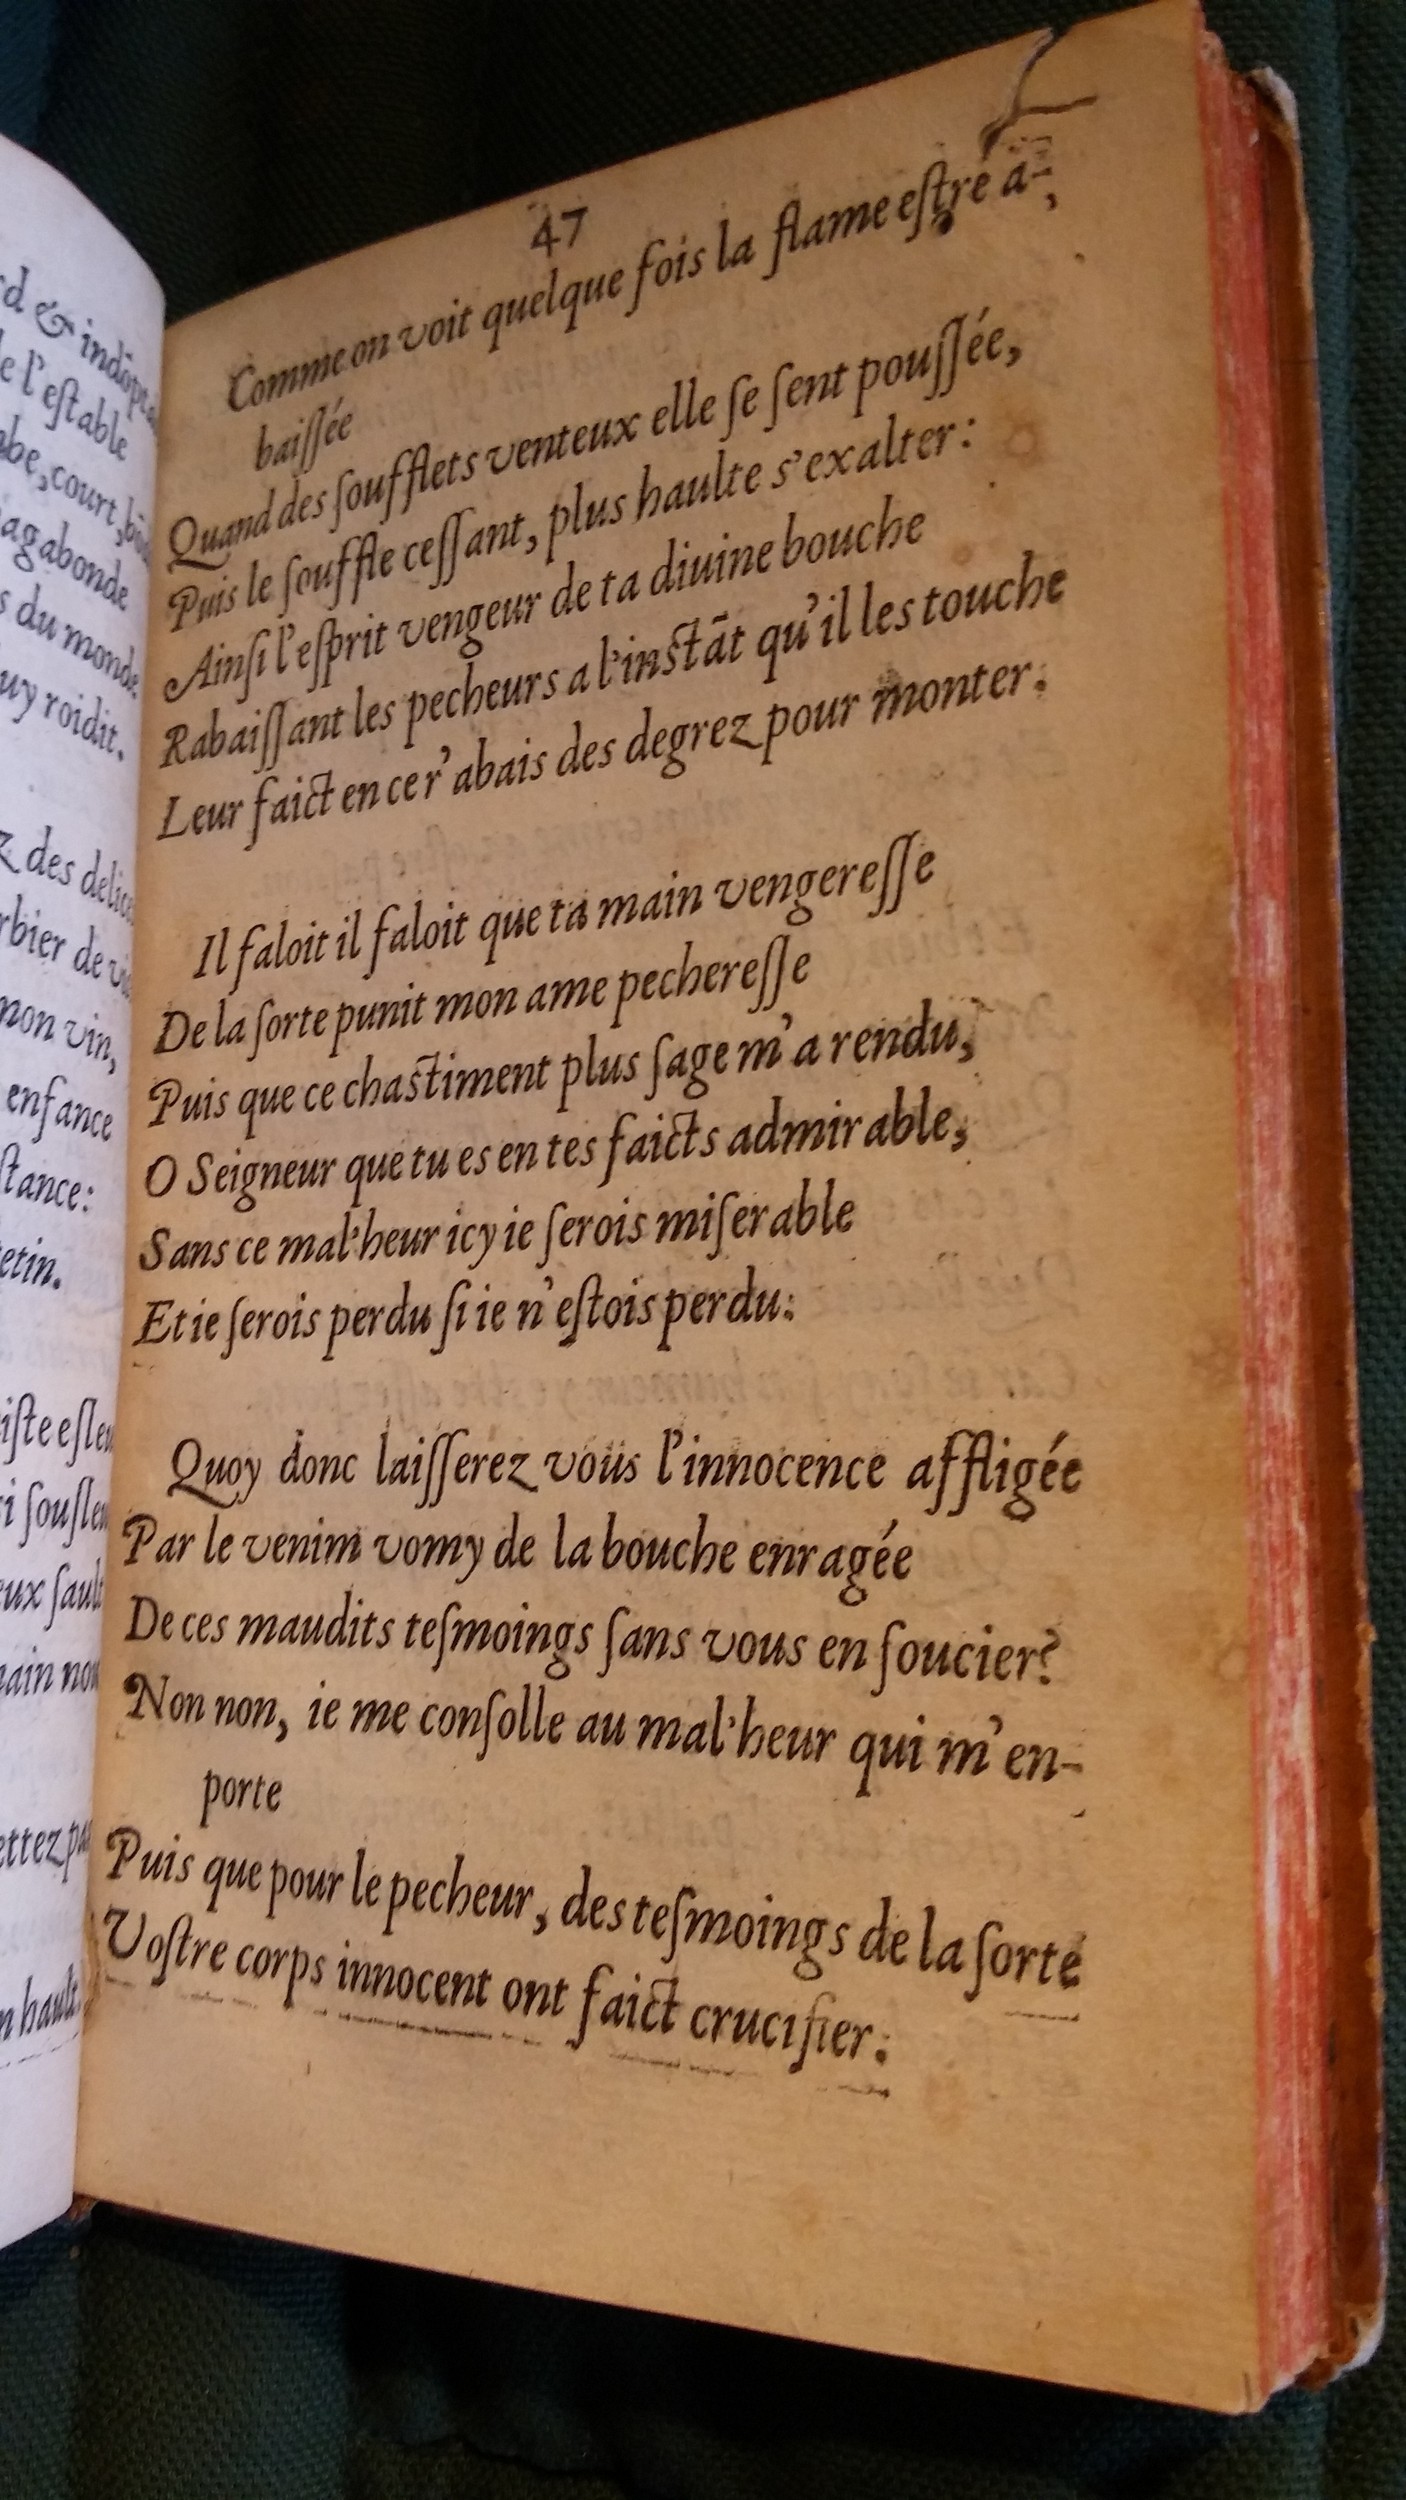 d & indōpta
e l'eſtable
abe, court, bō
agabonde
s du monde
uy roidit.
z des delices
rbier de vi
non vin,
enfance
ſtance:
etin.
iſte eſleu
i ſouſleu
eux ſault
ain nou
ettez pas
n hault.
47
Comme on voit quelque fois la flame eſtre a-
baiſſée
Quand des ſoufflets venteux elle ſe ſent pouſſée,
Puis le ſouffle ceſſant, plus haulte s'exalter:
Ainſi l'eſprit vengeur de ta diuine bouche
Rabaiſſant les pecheurs a l'inſtāt qu'il les touche
Leur faict en ce r'abais des degrez pour monter.
Il faloit il faloit que ta main vengereſſe
De la ſorte punit mon ame pechereſſe
Puis que ce chaſtiment plus ſage m'a rendu,
O Seigneur que tu es en tes faicts admirable,
Sans ce mal'heur icy ie ſerois miſerable
Et ie ſerois perdu ſi ie n'eſtois perdu.
Quoy donc laiſſerez vous l'innocence affligée
Par le venim vomy de la bouche enragée
De ces maudits teſmoings ſans vous en ſoucier?
Non non, ie me conſolle au mal'heur qui m'en-
porte
Puis que pour le pecheur, des teſmoings de la ſorte
Voſtre corps innocent ont faict crucifier.